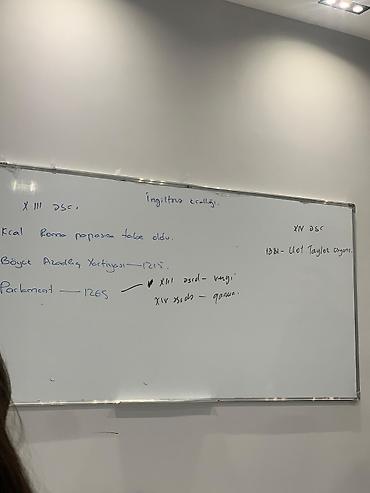 İngiltərə krallığı.
XIII əsr.
Kral Roma papasına tabe oldu.
Böyük Azadlıq Xartiyası — 1215.
Parlament — 1265
XIII əsrdə - vergi
XIV əsrdə - qanun.
XIV əsr
1381 - Uot Taylor üsyanı.